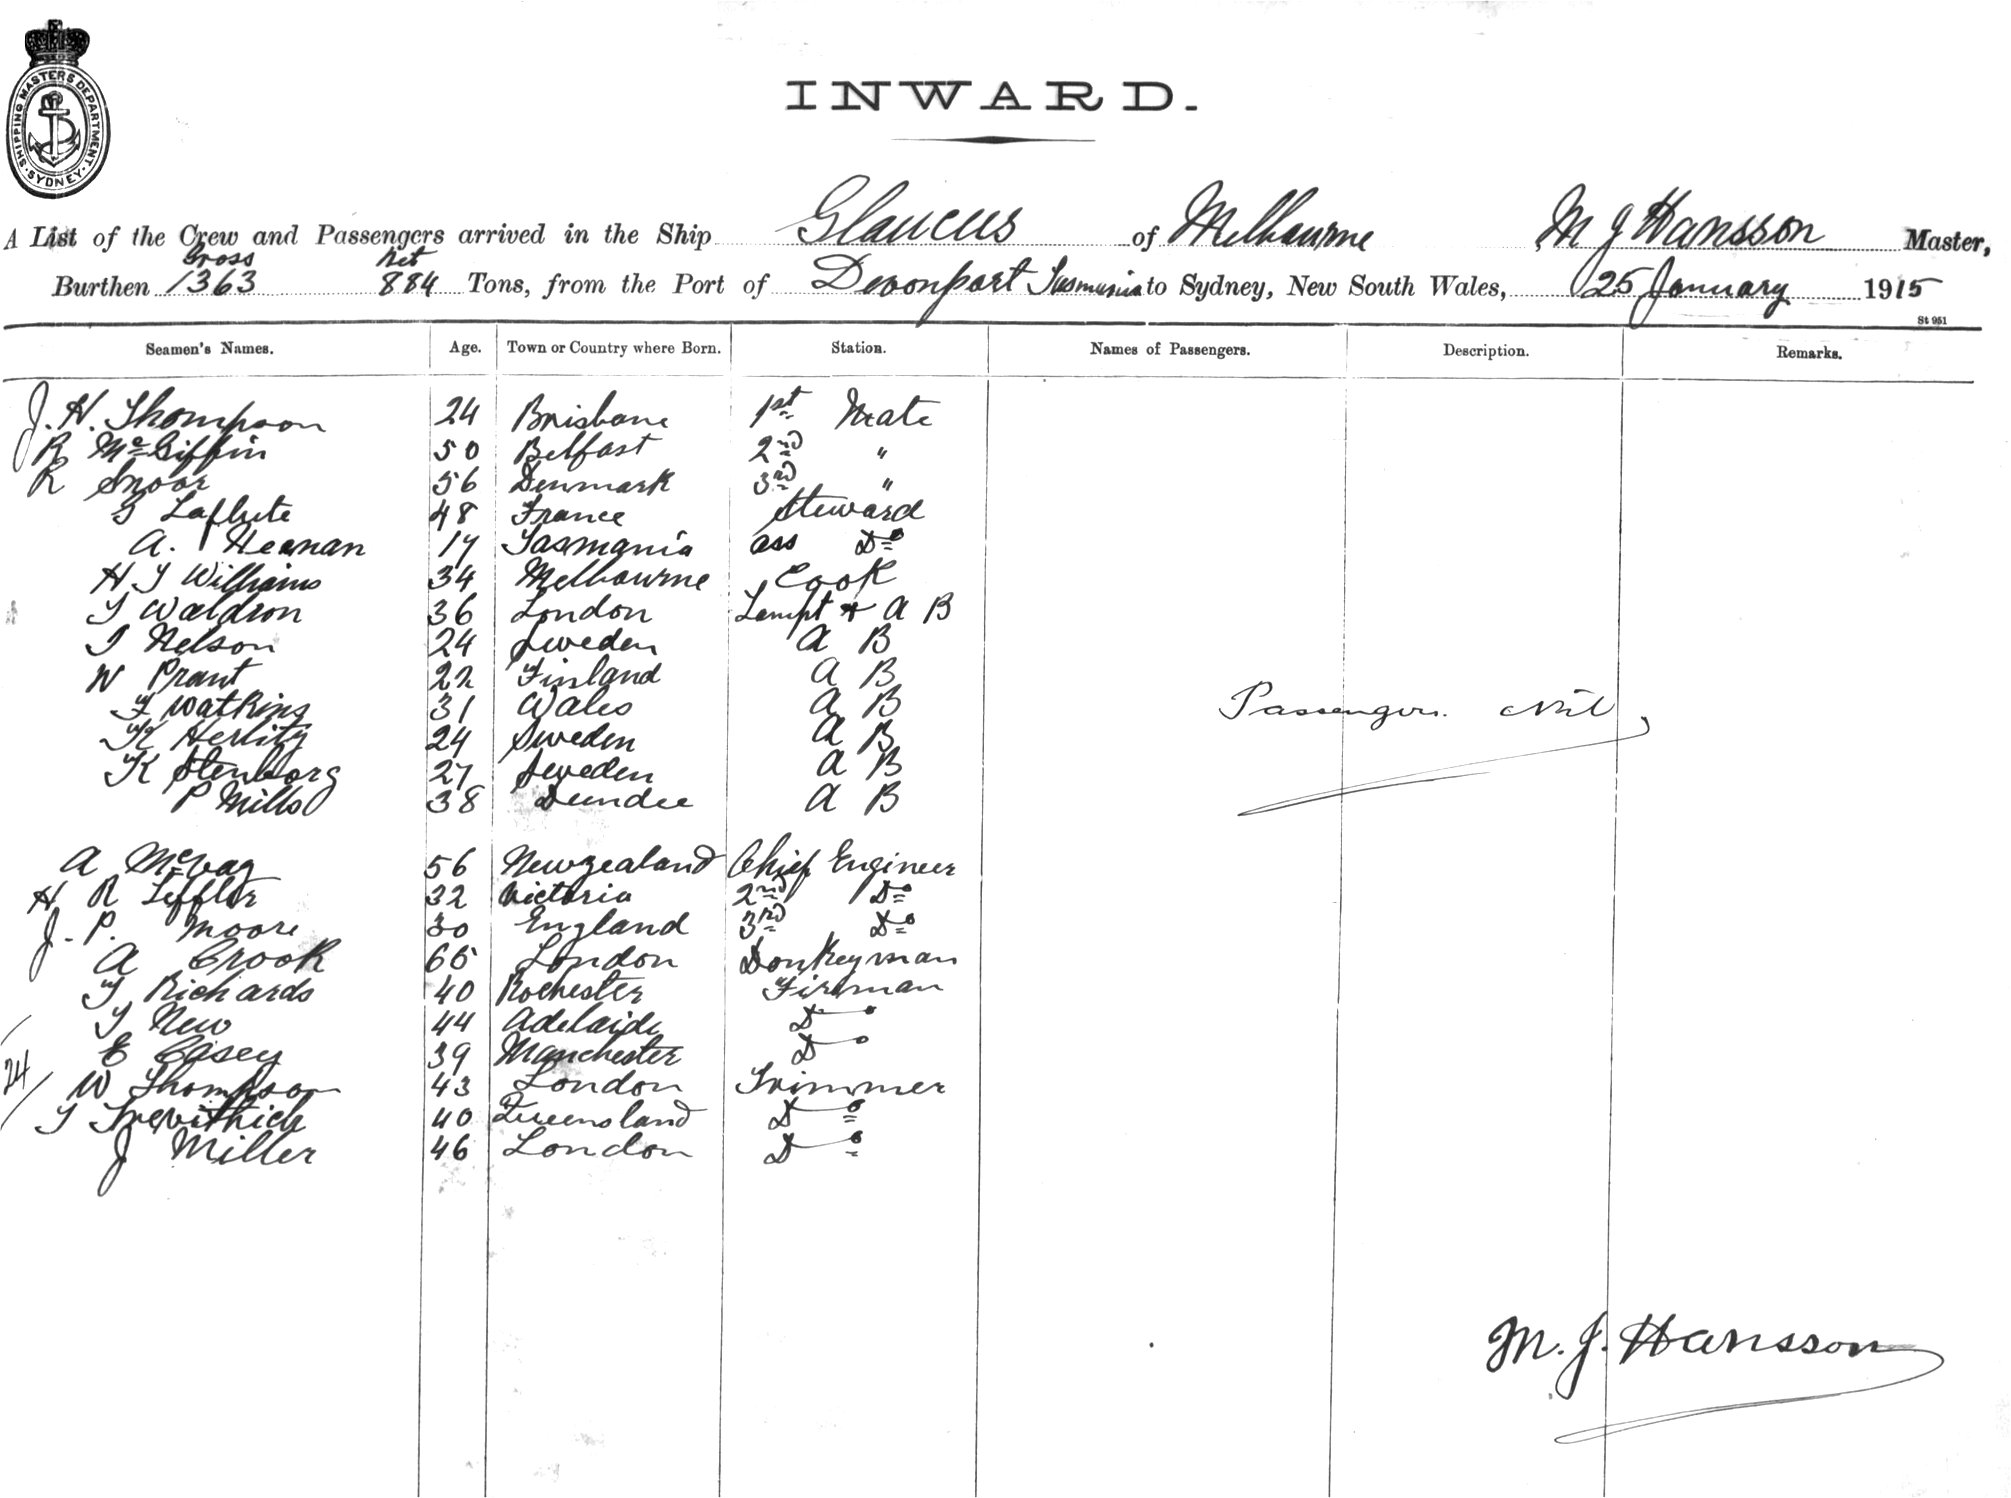 SHIPPING MASTERS DEPARTMENT
SYDNEY
INWARD.
A List of the Crew and Passengers arrived in the Ship Glaucus of Melbourne M J Hansson Master,
Gross Net
Burthen 1363 884 Tons, from the Port of Devonport Tasmania to Sydney, New South Wales, 25 January 1915
St 951
Seamen's Names. Age. Town or Country where Born. Station. Names of Passengers. Description. Remarks.
J. H. Thompson 24 Brisbane 1st Mate
R McGiffin 50 Belfast 2nd "
R Snoor 56 Denmark 3rd "
Laflute 48 France Steward
A. Heenan 17 Tasmania ass Do
H J Williams 34 Melbourne Cook
T Waldron 36 London Lampt & A B
Nelson 24 Sweden A B
W Prant 22 Finland A B
F Watkins 31 Wales A B
K Herlitz 24 Sweden A B
K Stenborg 27 Sweden A B
P Mills 38 Dundee A B
Passengers Nil
A McVag 56 New Zealand Chief Engineer
H R Leffler 32 Victoria 2nd Do
J. P. Moore 30 England 3rd Do
A Crook 65 London Donkeyman
T Richards 40 Rochester Fireman
T New 44 Adelaide Do
E Casey 39 Manchester Do
24/ W Thompson 43 London Trimmer
T Trevithick 40 Queensland Do
J Miller 46 London Do
M. J. Hansson